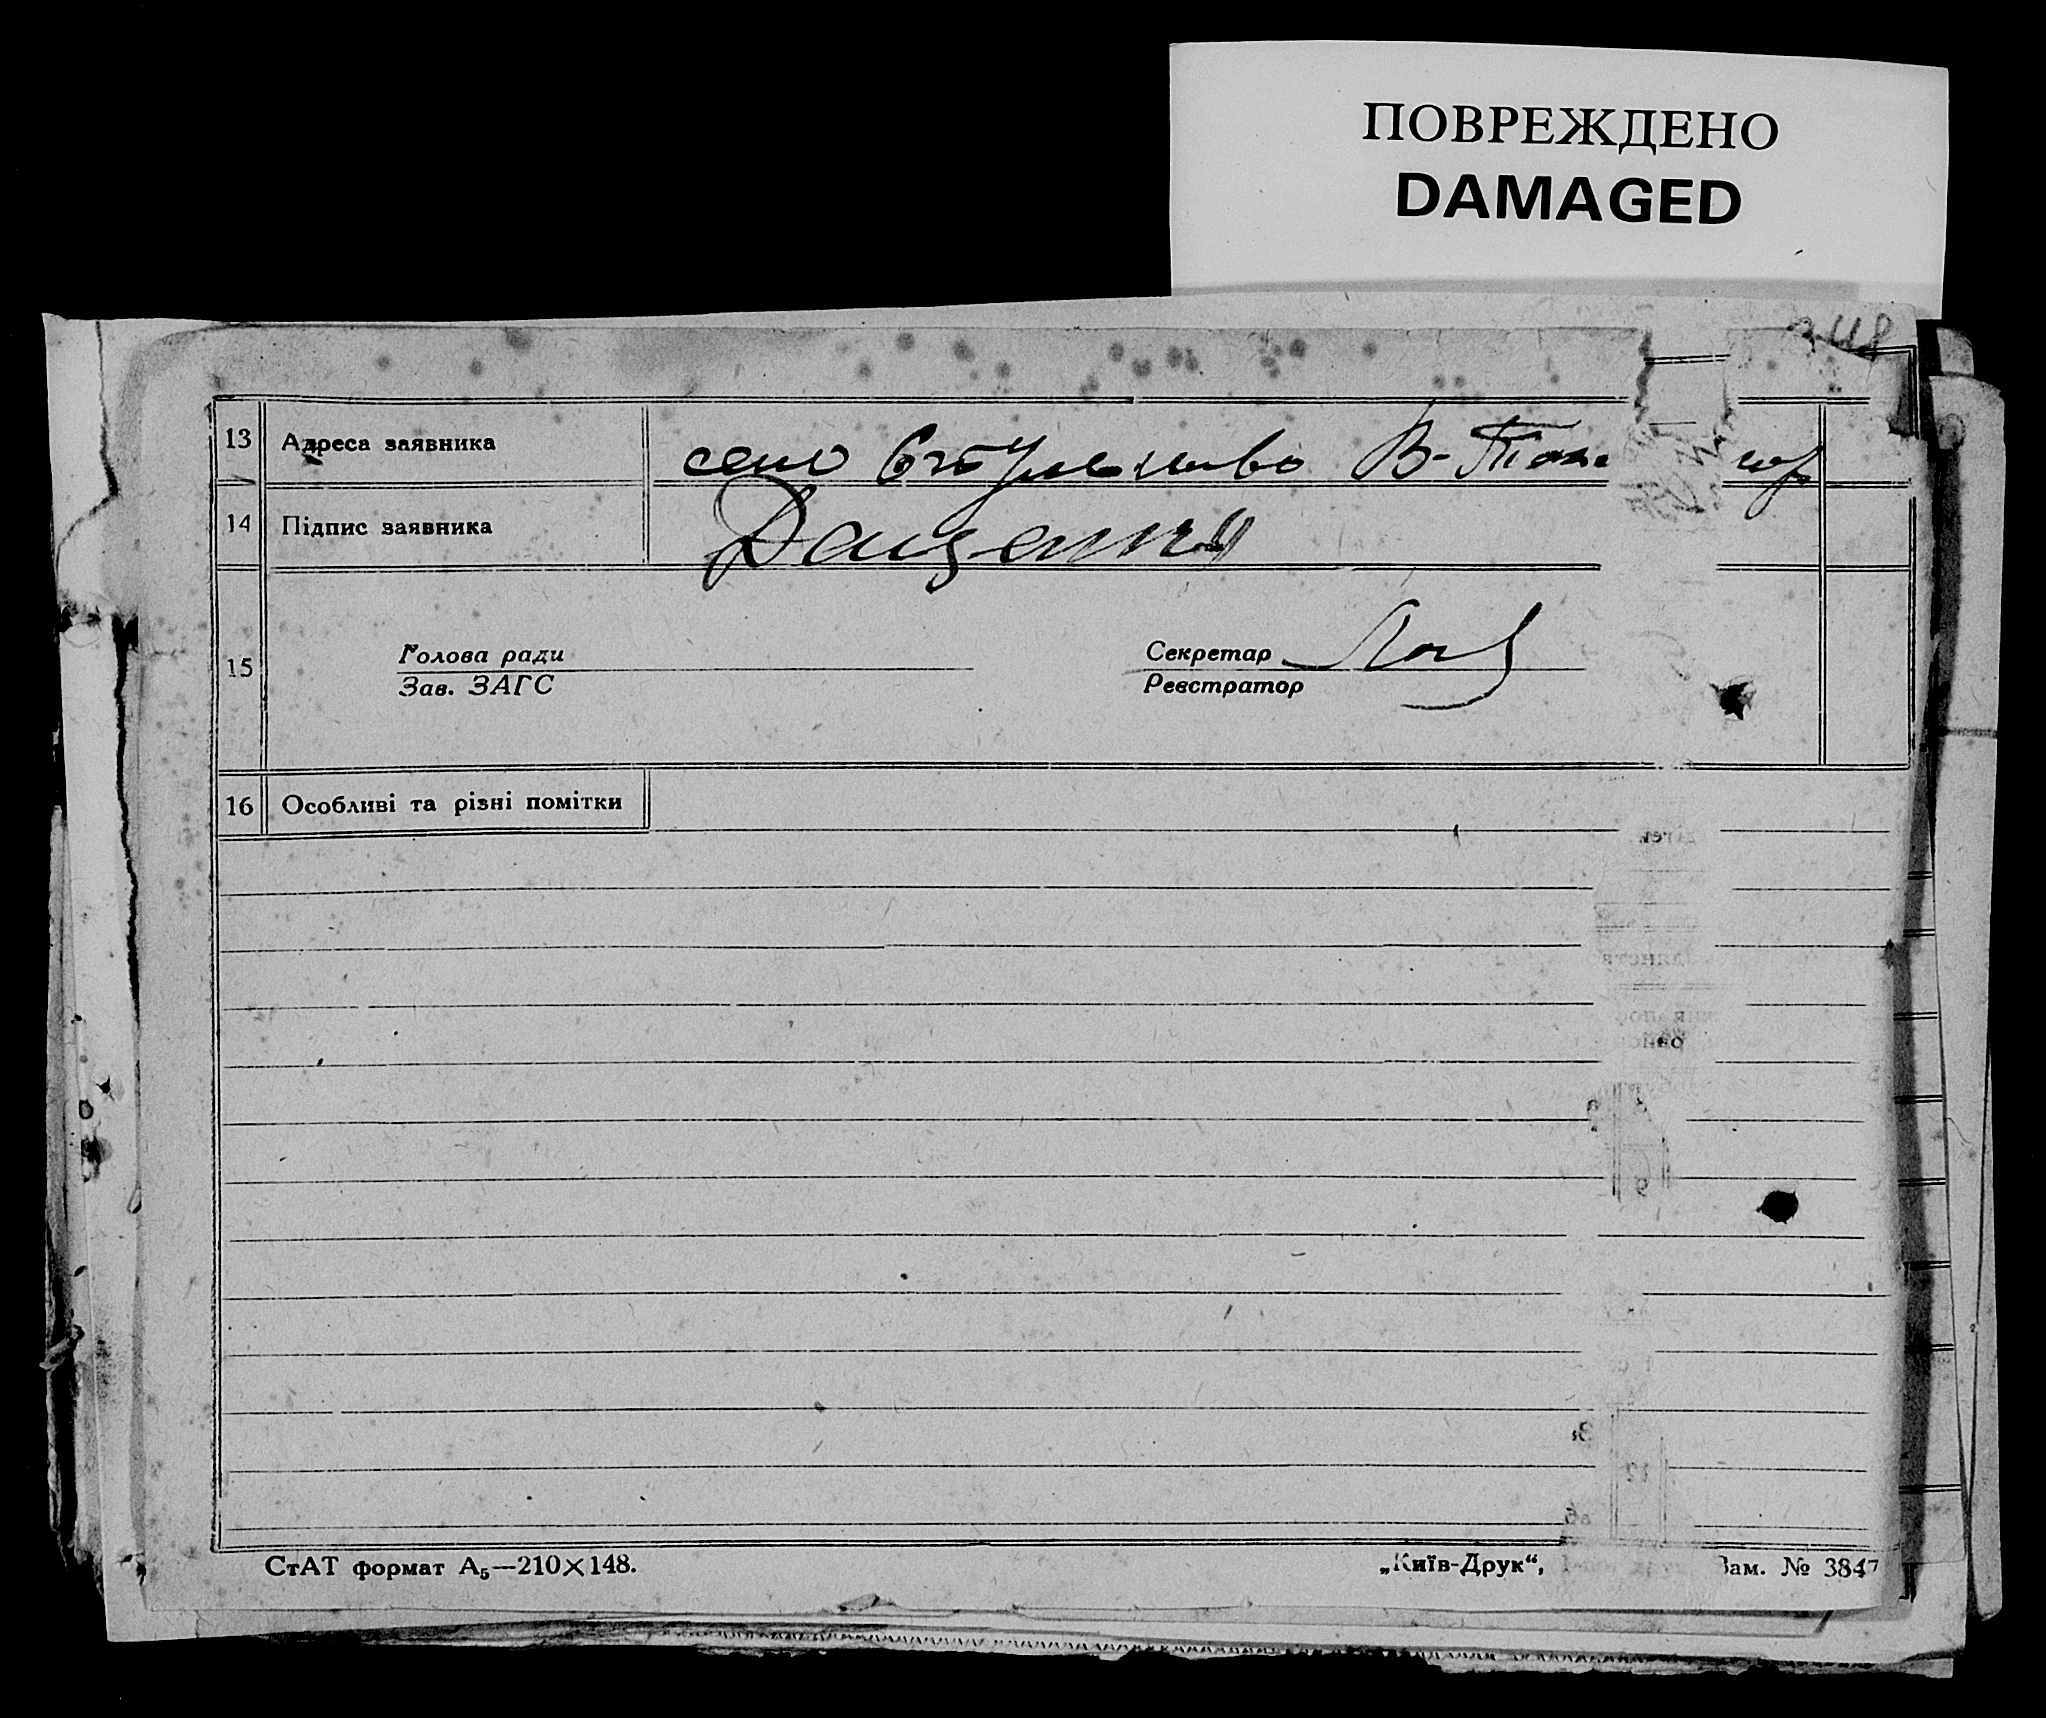 ПОВРЕЖДЕНО
DAMAGED
13 Адреса заявника село В-
14 Підпис заявника Даценко
15 Голова ради Секретар
Зав. ЗАГС Реєстратор
16 Особливі та різні помітки
СтАТ формат А₅—210×148. „Київ-Друк“, Зам. № 3847